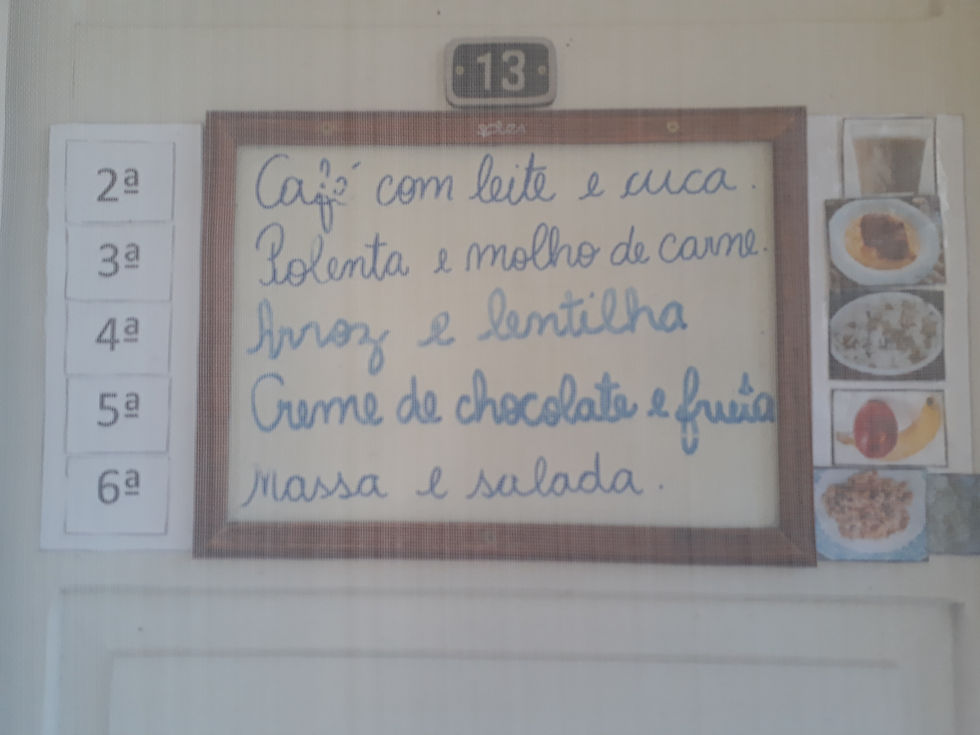 13
2ª Café com leite e cuca.
3ª Polenta e molho de carne.
4ª Arroz e lentilha
5ª Creme de chocolate e fruta
6ª Massa e salada.